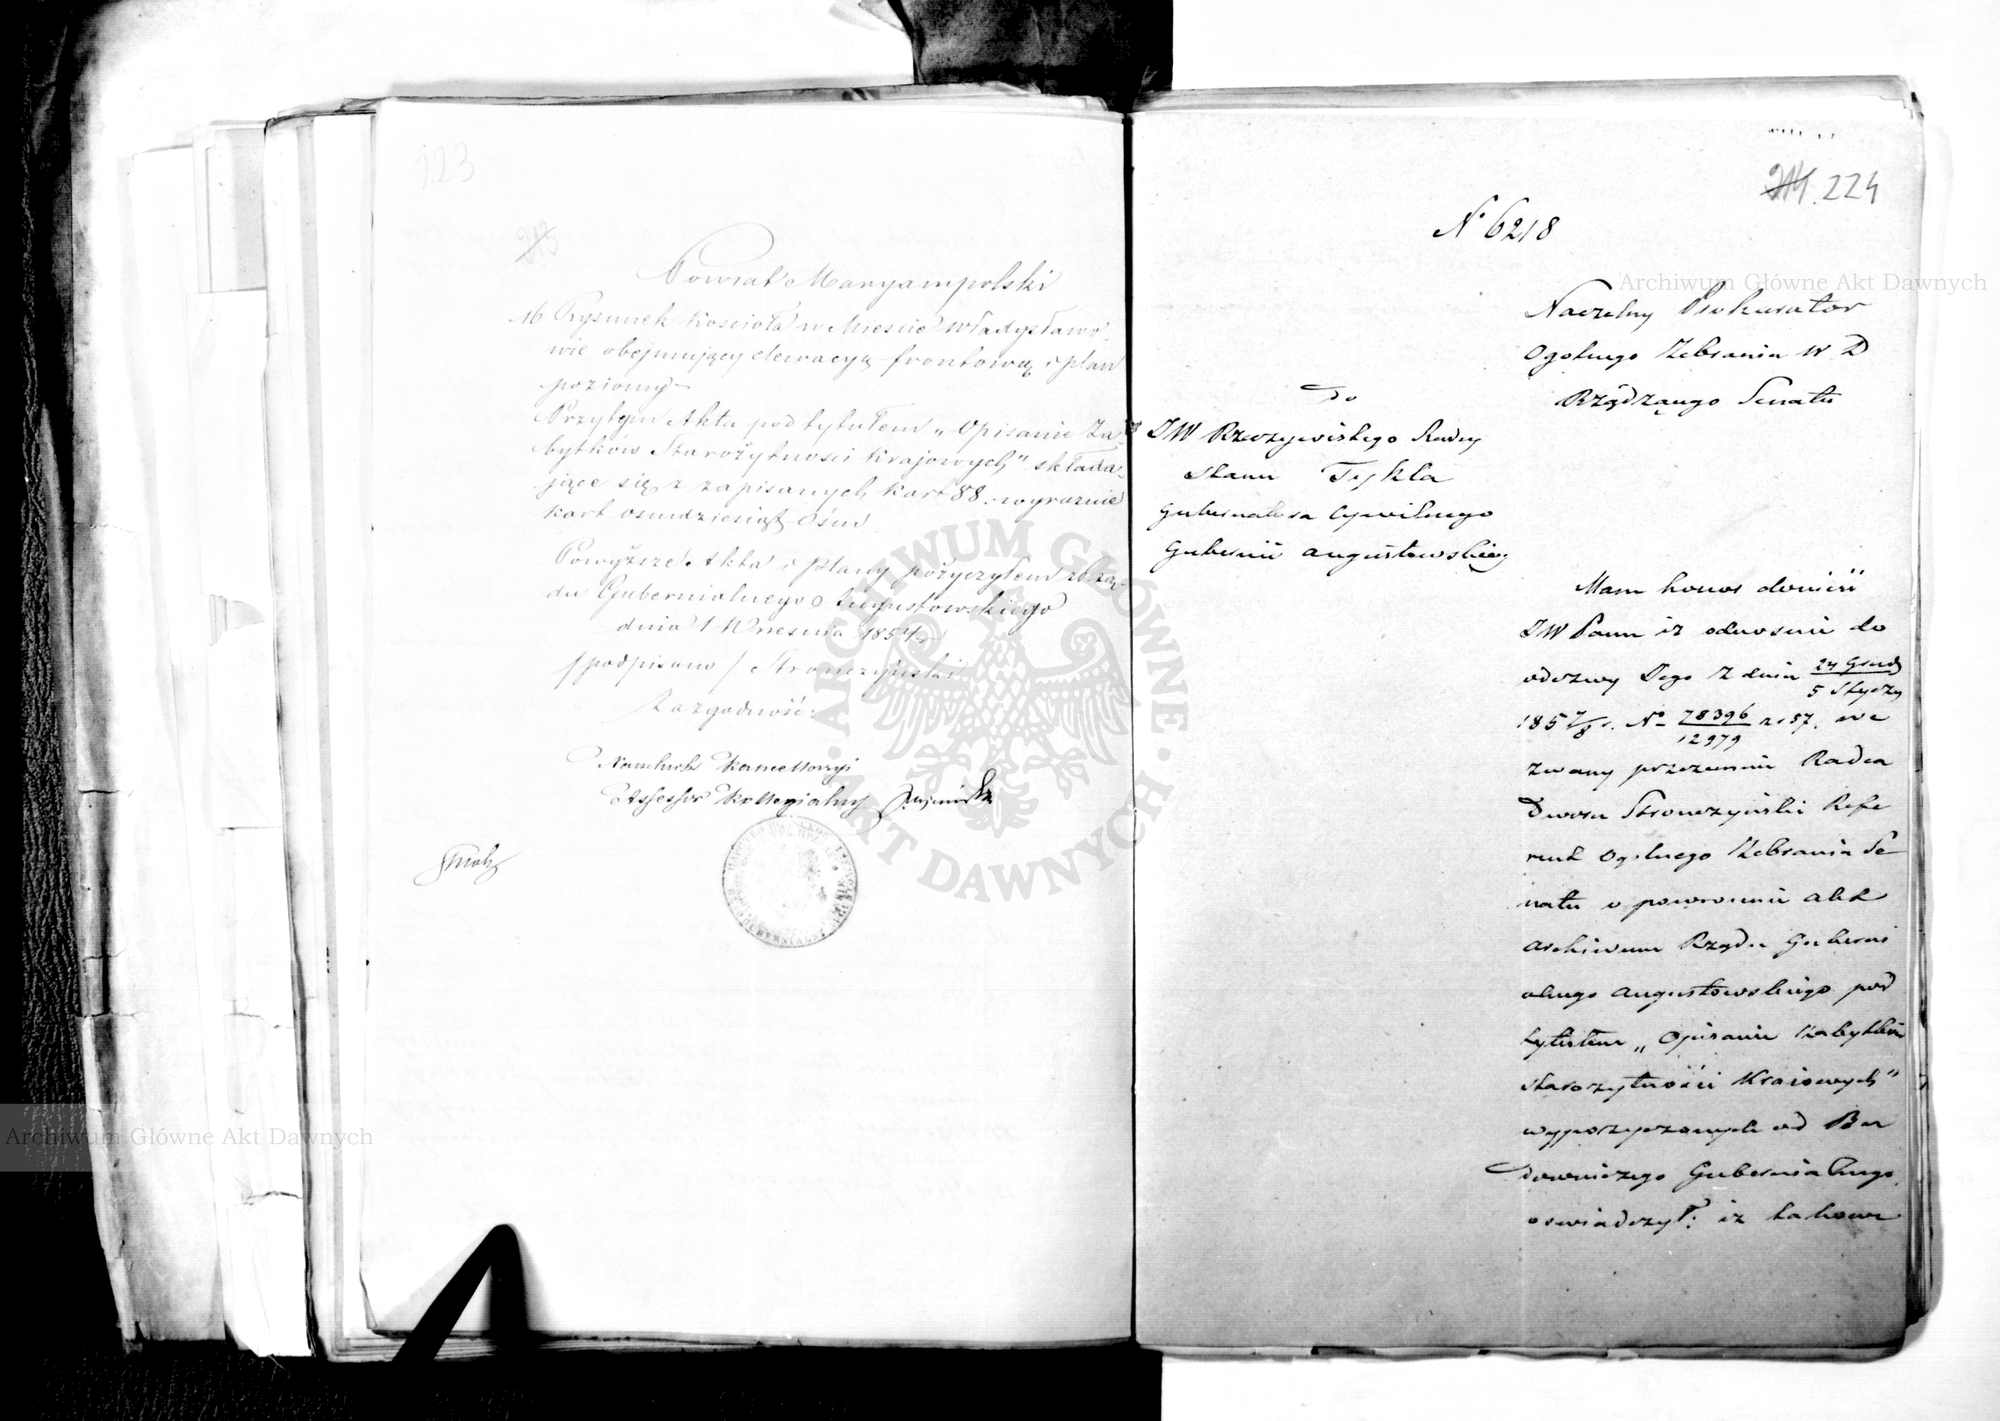 223
213
Powiat Maryampolski
16 Rysunek Kościoła w Mieście Władysławo-
wie obejmujący elewacyą frontową i plan
poziomy –
Przytem Akta pod tytułem „Opisanie Za-
bytków Starożytności Krajowych" składa-
jące się z zapisanych kart 88. wyraźnie
kart osmdziesiąt ośm
Powyższe Akta i plany pożyczyłem z Rzą-
du Gubernialnego Augustowskiego
dnia 1 Września 1854 r.
/podpisano/ Stronczyński
Za zgodność:
Naczelnik Kancellaryi
Assessor Kollegialny
214. 224
N° 6218
Naczelny Prokurator
Ogólnego Zebrania W. D
Rządzącego Senatu
Do
JW Rzeczywistego Radcy
Stanu Tykla
Gubernatora Cywilnego
Gubernii Augustowskiej
Mam honor donieść
JW Panu iż odnośnie do
odezwy Jego z dnia 24 Grud
5 Stycz
185 7/8 r. No 78396 r 57. we
12979
zwany przezemnie Radca
Dworu Stronczyński Refe
rent Ogólnego Zebrania Se
natu o powrocenie akt
archiwum Rządu Guberni
alnego Augustowskiego pod
tytułem „Opisanie Zabytków
starożytności Krajowych"
wypożyczonych od Bu
downiczego Gubernialnego
oświadczył: iż takowe
Archiwum Główne Akt Dawnych
Archiwum Główne Akt Dawnych
ARCHIWUM GŁÓWNE · AKT DAWNYCH ·